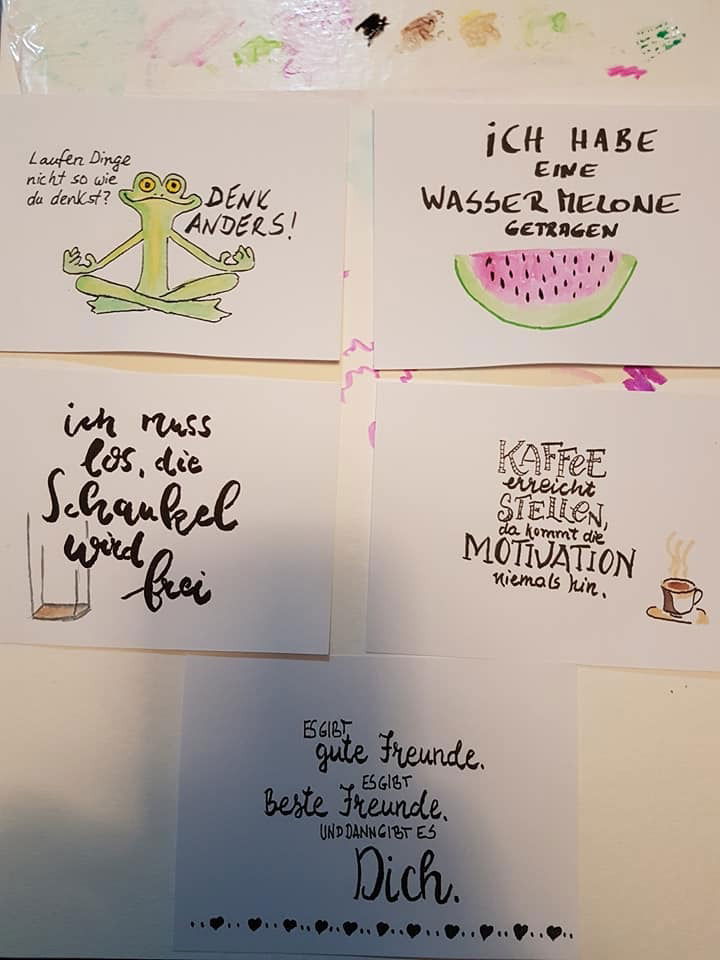 Laufen Dinge
nicht so wie
du denkst?
DENK
ANDERS!
iCH HABE
EINE
WASSERMELONE
GETRAGEN
ich muss
los, die
Schaukel
wird
frei
KAFFeE
erreicht
STELLEN,
da kommt die
MOTIVATION
niemals hin.
ES GIBT
gute Freunde.
ES GIBT
Beste Freunde.
UND DANN GIBT ES
Dich.